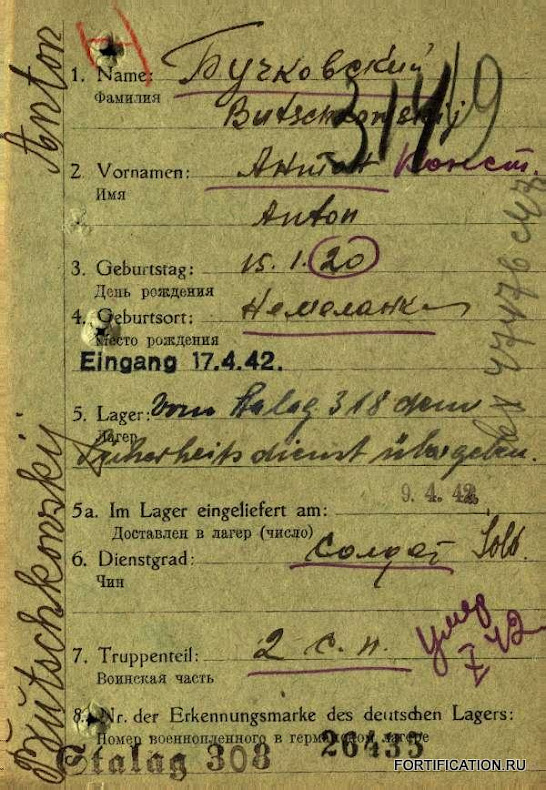 Anton
Butschkowskij
1. Name: Бучковский
Фамилия
Butschkowskij
3149
2. Vornamen: Антон Конст.
Имя
Anton
3. Geburtstag: 15. 1. 20
День рождения
4. Geburtsort:
Место рождения
Eingang 17.4.42.
5. Lager: Vom Stalag 318 dem
Лагер
Sicherheitsdienst übergeben.
9. 4. 42
5a. Im Lager eingeliefert am:
Доставлен в лагер (число)
6. Dienstgrad: Солдат Sold.
Чин
умер
7 42
7. Truppenteil: 2 с. п.
Воинская часть
8. Nr. der Erkennungsmarke des deutschen Lagers:
Номер военнопленного в германском лагере
Stalag 308 26435
FORTIFICATION.RU